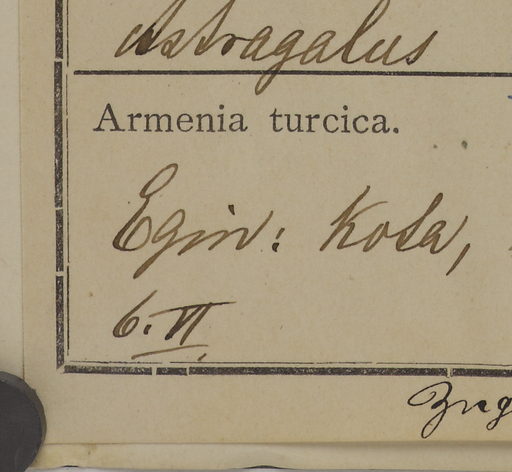 Astragalus
Armenia turcica.
Egin: Kota,
6. VI.